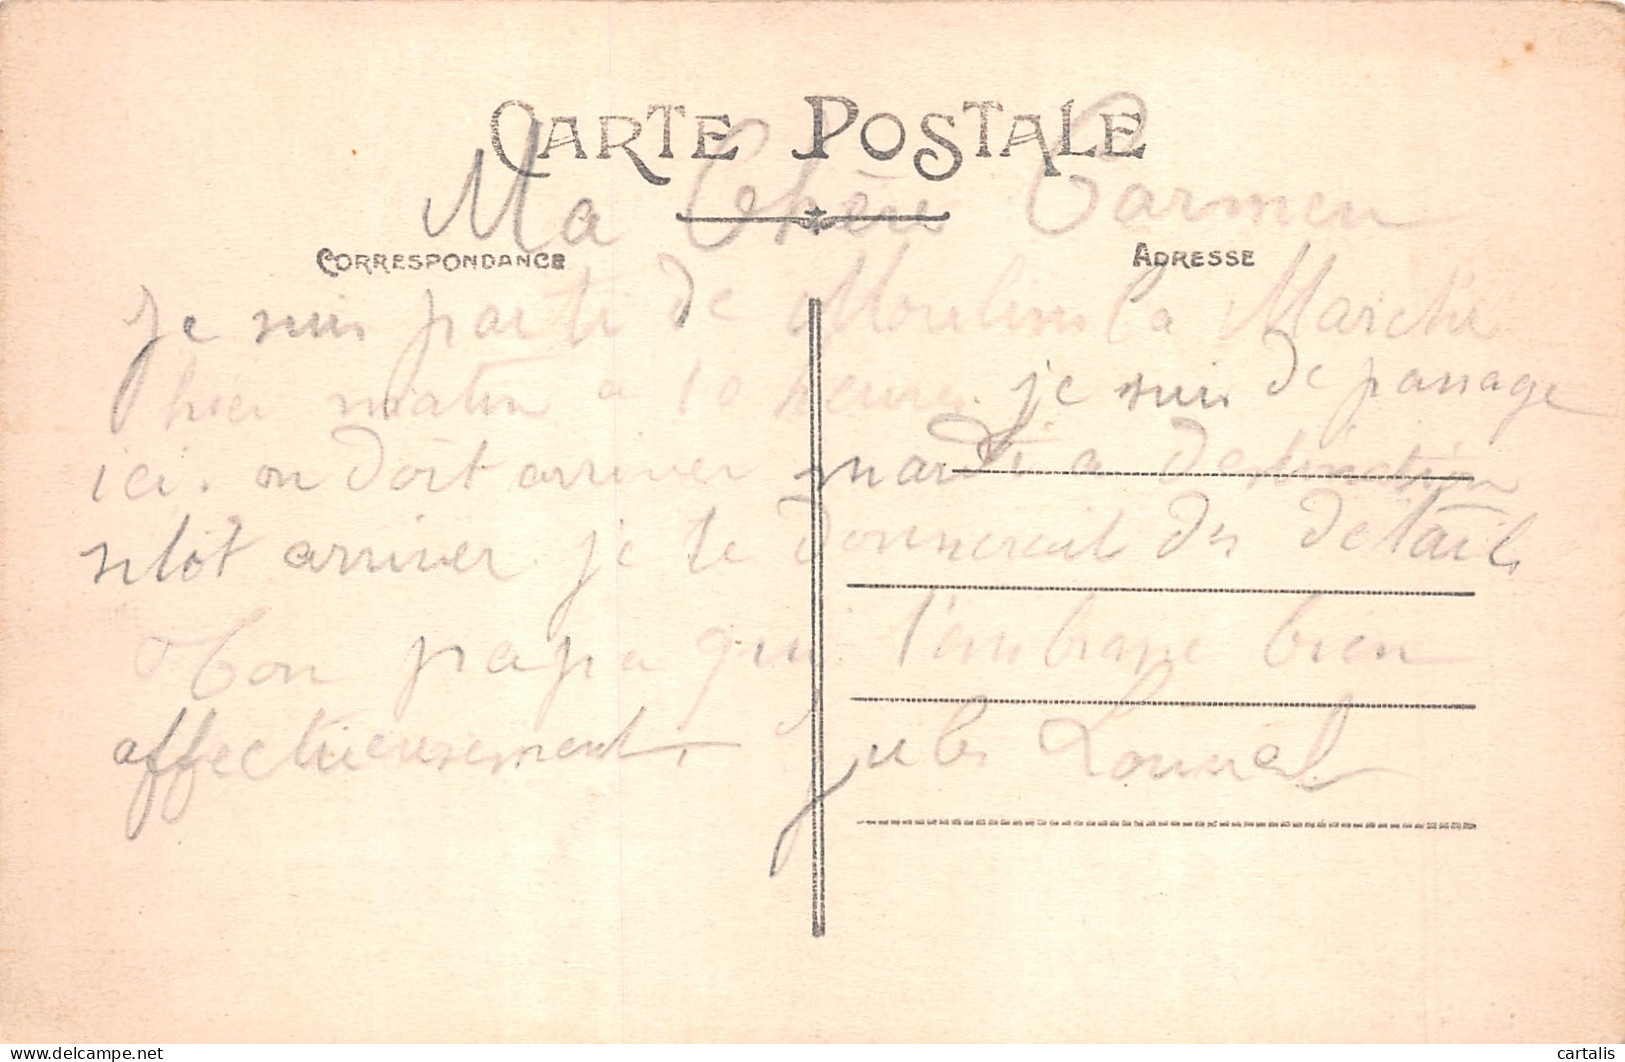 CARTE POSTALE
Ma Chère Carmen
CORRESPONDANCE
ADRESSE
Je suis parti de Moulins la Marche
hier matin a 10 heures je suis de passage
ici. on doit arriver mardi a destination
sitôt arriver je te donnerait des details
Ton papa qui t'embrasse bien
affectueusement. Jules
delcampe.net
cartalis